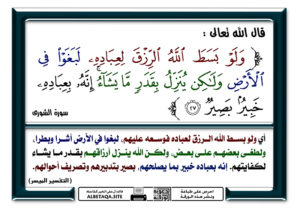 قال الله تعالى :
﴿ وَلَوْ بَسَطَ اللَّهُ الرِّزْقَ لِعِبَادِهِۦ لَبَغَوْا۟ فِى
ٱلْأَرْضِ وَلَٰكِن يُنَزِّلُ بِقَدَرٍ مَّا يَشَآءُ ۚ إِنَّهُۥ بِعِبَادِهِۦ
خَبِيرٌۢ بَصِيرٌ ٢٧ ﴾
سورة الشورى
أي ولو بسط الله الرزق لعباده فوسعه عليهم، لبغوا في الأرض أشرا وبطرا،
ولطغى بعضهم على بعض، ولكن الله ينزل أرزاقهم بقدر ما يشاء
لكفايتهم. إنه بعباده خبير بما يصلحهم، بصير بتدبيرهم وتصريف أحوالهم.
(التفسير الميسر)
ALBETAQA.SITE